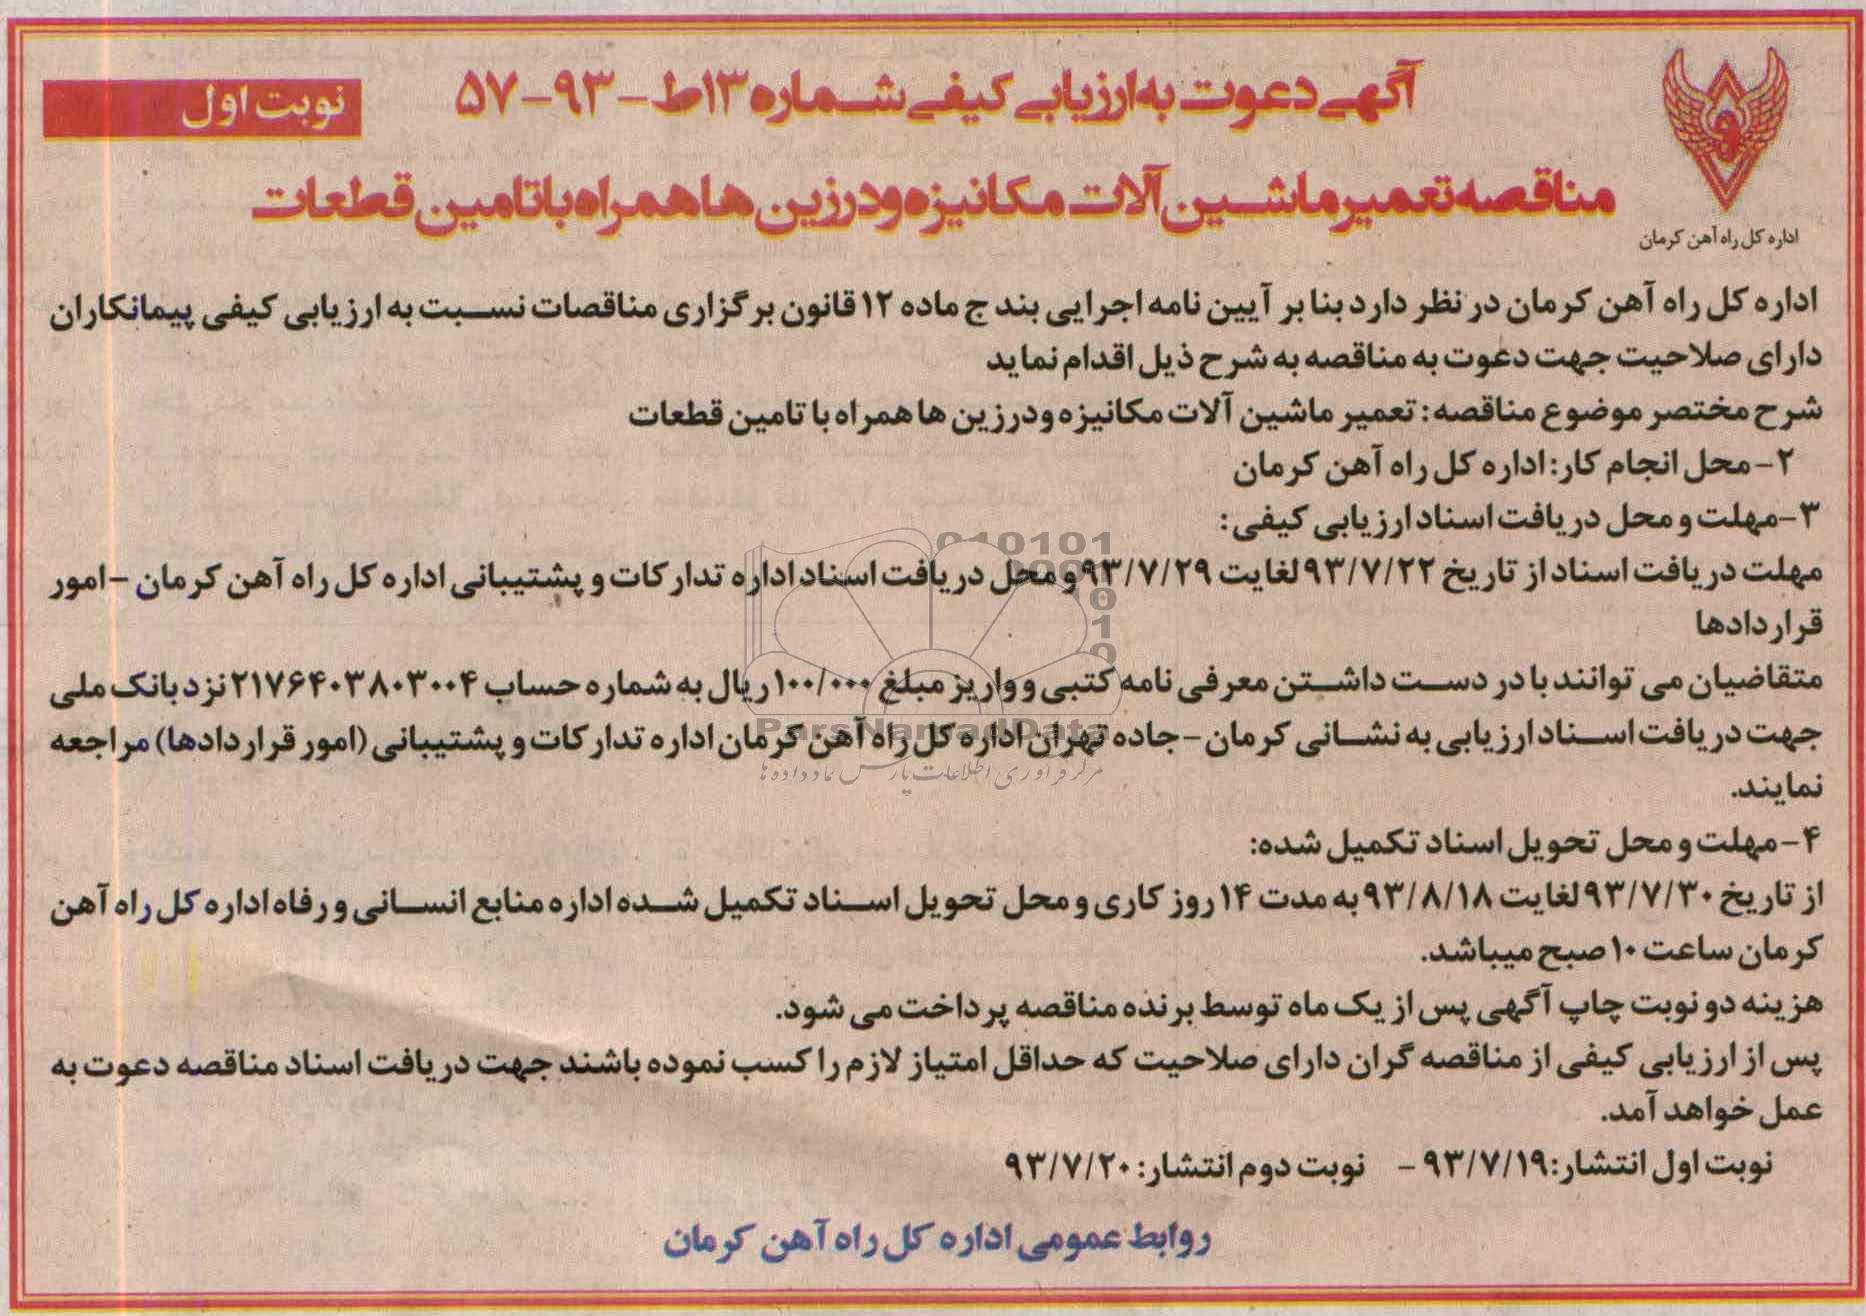 آگهی دعوت به ارزیابی کیفی شماره ۱۳ط - ۹۳-۵۷
نوبت اول
مناقصه تعمیر ماشین آلات مکانیزه ودرزین ها همراه با تامین قطعات
اداره کل راه آهن کرمان
اداره کل راه آهن کرمان در نظر دارد بنا بر آیین نامه اجرایی بند ج ماده ۱۲ قانون برگزاری مناقصات نسبت به ارزیابی کیفی پیمانکاران
دارای صلاحیت جهت دعوت به مناقصه به شرح ذیل اقدام نماید
شرح مختصر موضوع مناقصه: تعمیر ماشین آلات مکانیزه ودرزین ها همراه با تامین قطعات
۲- محل انجام کار: اداره کل راه آهن کرمان
۳-مهلت و محل دریافت اسناد ارزیابی کیفی:
مهلت دریافت اسناد از تاریخ ۹۳/۷/۲۲ لغایت ۹۳/۷/۲۹ و محل دریافت اسناد اداره تدارکات و پشتیبانی اداره کل راه آهن کرمان -امور
قراردادها
متقاضیان می توانند با در دست داشتن معرفی نامه کتبی و واریز مبلغ ۱۰۰/۰۰۰ ریال به شماره حساب ۲۱۷۶۴۰۳۸۰۳۰۰۴ نزد بانک ملی
جهت دریافت اسناد ارزیابی به نشانی کرمان -جاده تهران اداره کل راه آهن کرمان اداره تدارکات و پشتیبانی (امور قراردادها) مراجعه
نمایند.
۴-مهلت و محل تحویل اسناد تکمیل شده:
از تاریخ ۹۳/۷/۳۰ لغایت ۹۳/۸/۱۸ به مدت ۱۴ روز کاری و محل تحویل اسناد تکمیل شده اداره منابع انسانی و رفاه اداره کل راه آهن
کرمان ساعت ۱۰ صبح میباشد.
هزینه دو نوبت چاپ آگهی پس از یک ماه توسط برنده مناقصه پرداخت می شود.
پس از ارزیابی کیفی از مناقصه گران دارای صلاحیت که حداقل امتیاز لازم را کسب نموده باشند جهت دریافت اسناد مناقصه دعوت به
عمل خواهد آمد.
نوبت اول انتشار: ۹۳/۷/۱۹ - نوبت دوم انتشار: ۹۳/۷/۲۰
روابط عمومی اداره کل راه آهن کرمان
ParsNamadData
مرکز فرآوری اطلاعات پارس نماد داده ها